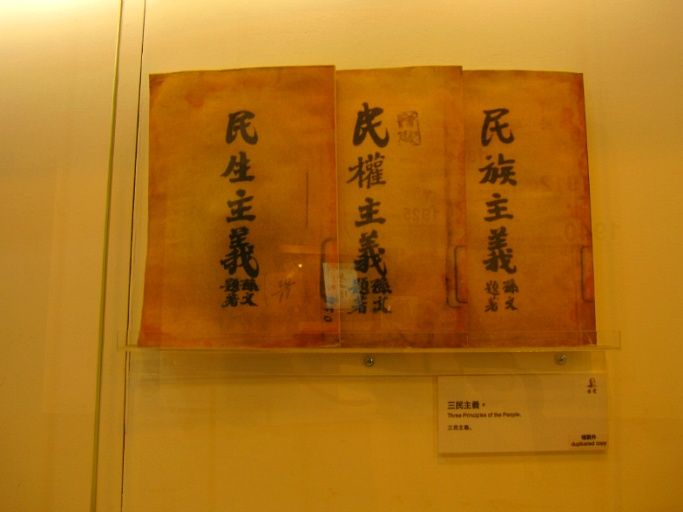 民族主義
孫文
題著
民權主義
孫文
題著
民生主義
孫文
題著
三民主義。
Three Principles of the People.
三民主義。
複製件
duplicated copy